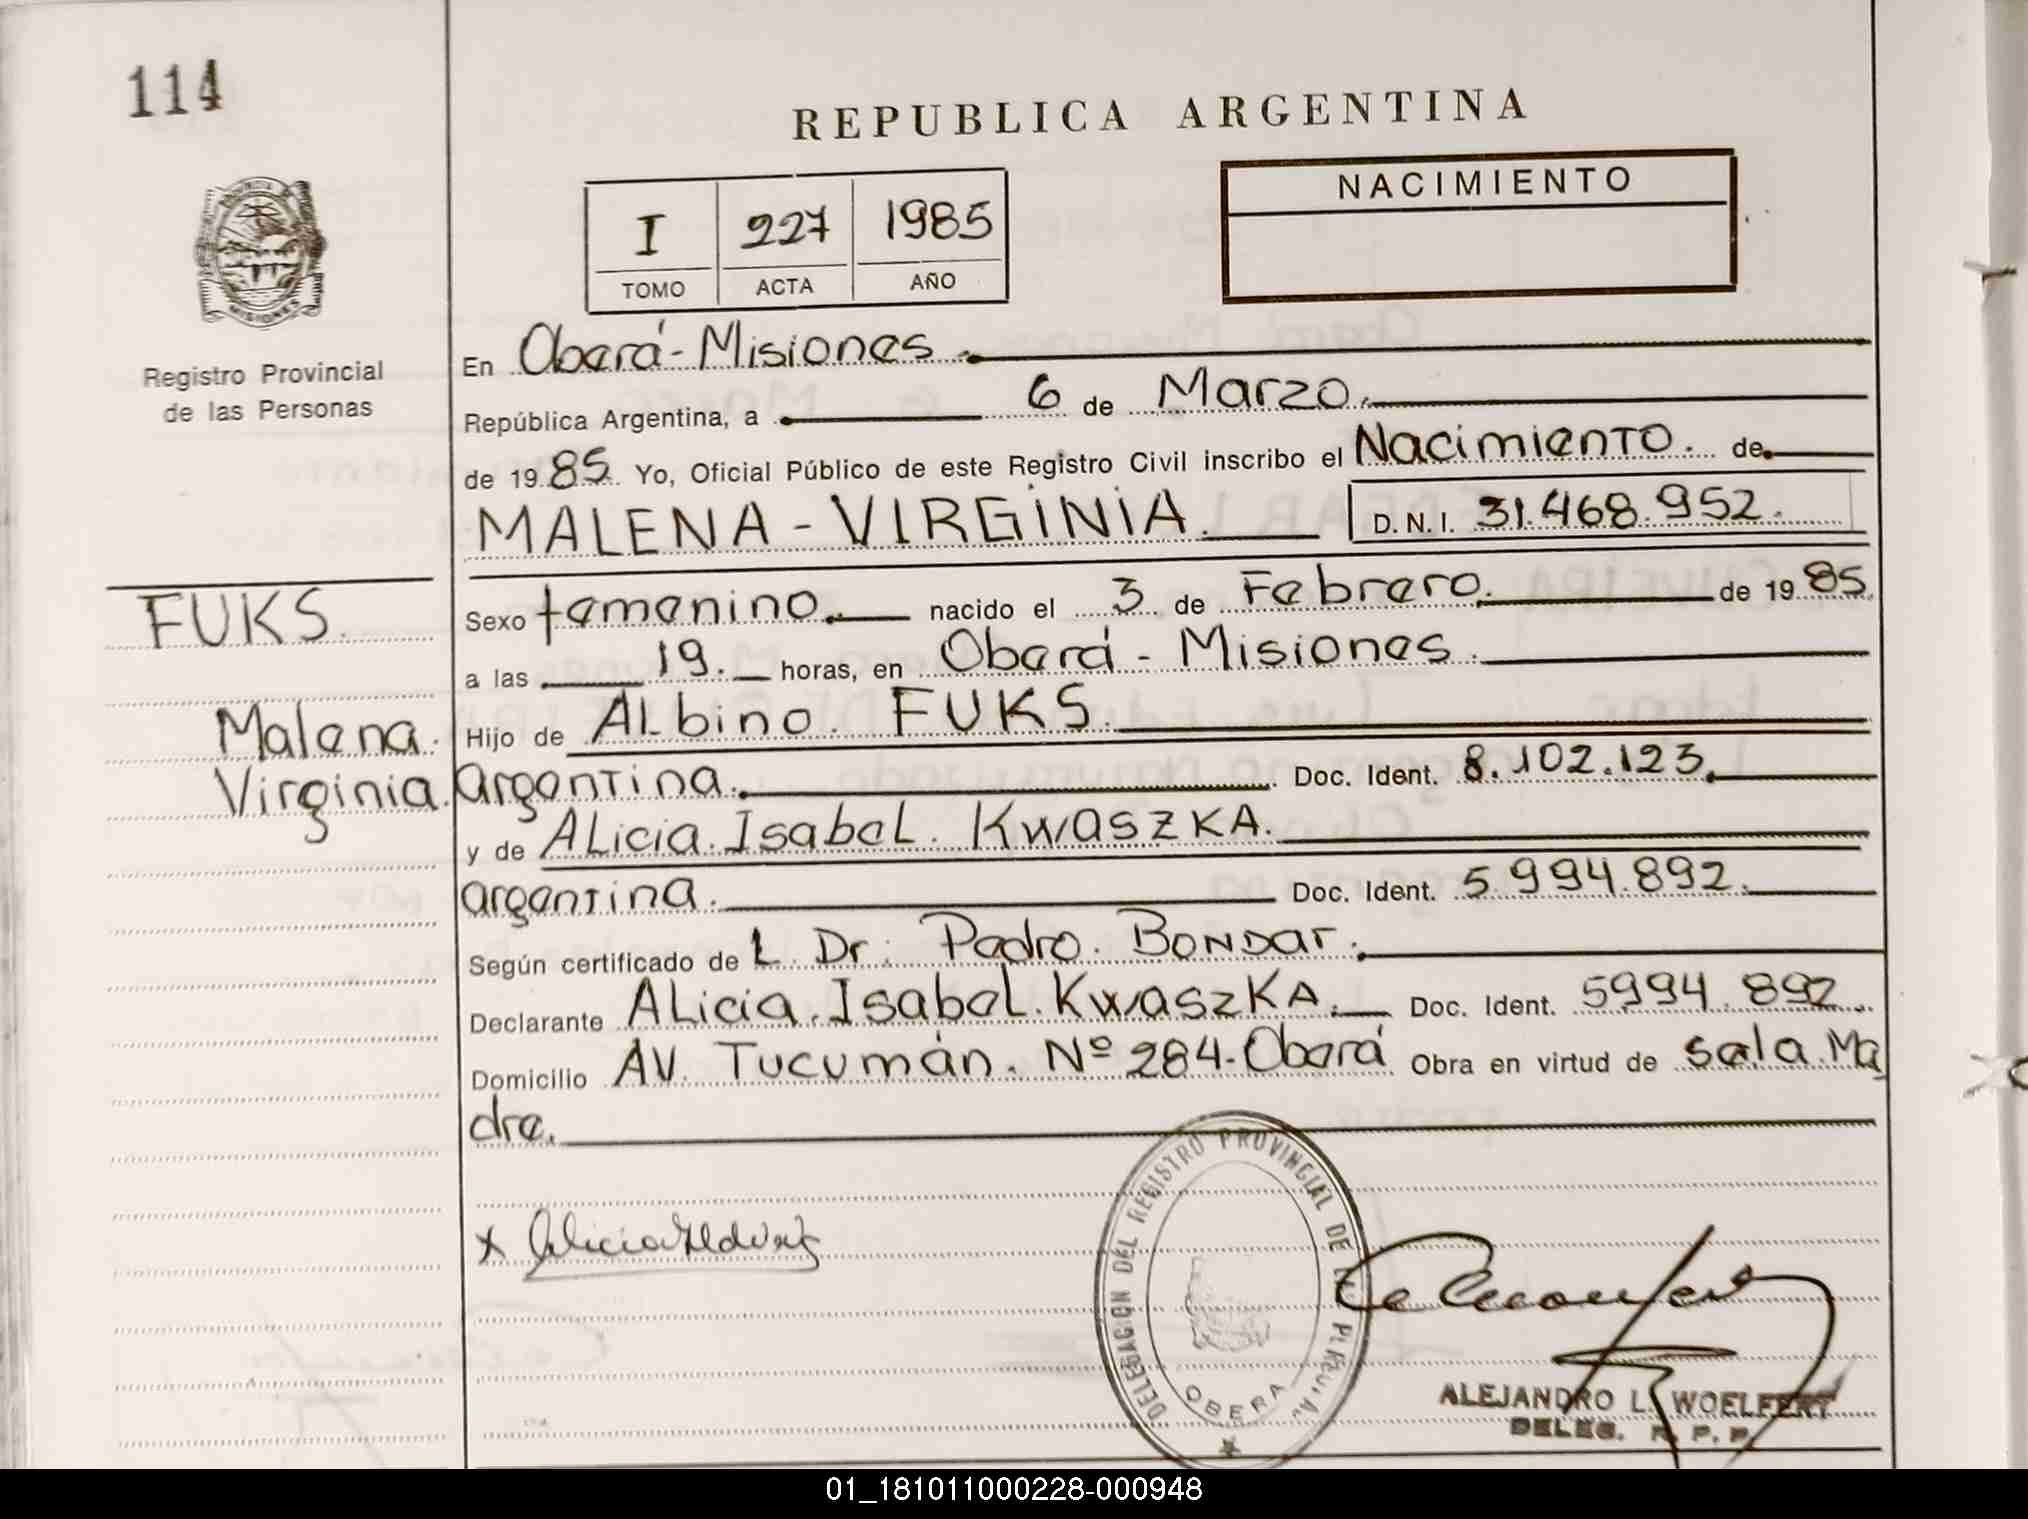 114
REPUBLICA ARGENTINA
I 227 1985
TOMO ACTA AÑO
NACIMIENTO
MISIONES
Registro Provincial
de las Personas
En Oberá - Misiones.
República Argentina, a 6 de Marzo.
de 1985. Yo, Oficial Público de este Registro Civil inscribo el Nacimiento. de
MALENA - VIRGINIA. D.N.I. 31.468.952.
FUKS.
Malena.
Virginia.
Sexo femenino. nacido el 3 de Febrero. de 1985.
a las 19. horas, en Oberá - Misiones.
Hijo de Albino FUKS.
argentina. Doc. Ident. 8.102.123.
y de Alicia Isabel. Kwaszka.
argentina. Doc. Ident. 5.994.892.
Según certificado de L Dr. Pedro. Bondar.
Declarante Alicia. Isabel. Kwaszka. Doc. Ident. 5994.892.
Domicilio AV. Tucumán. Nº 284-Oberá Obra en virtud de sela. Ma
dre.
DELEGACION DEL REGISTRO PROVINCIAL DE
OBERA
x Alicia
ALEJANDRO L. WOELFERT
DELEG. R. P. P.
01_181011000228-000948